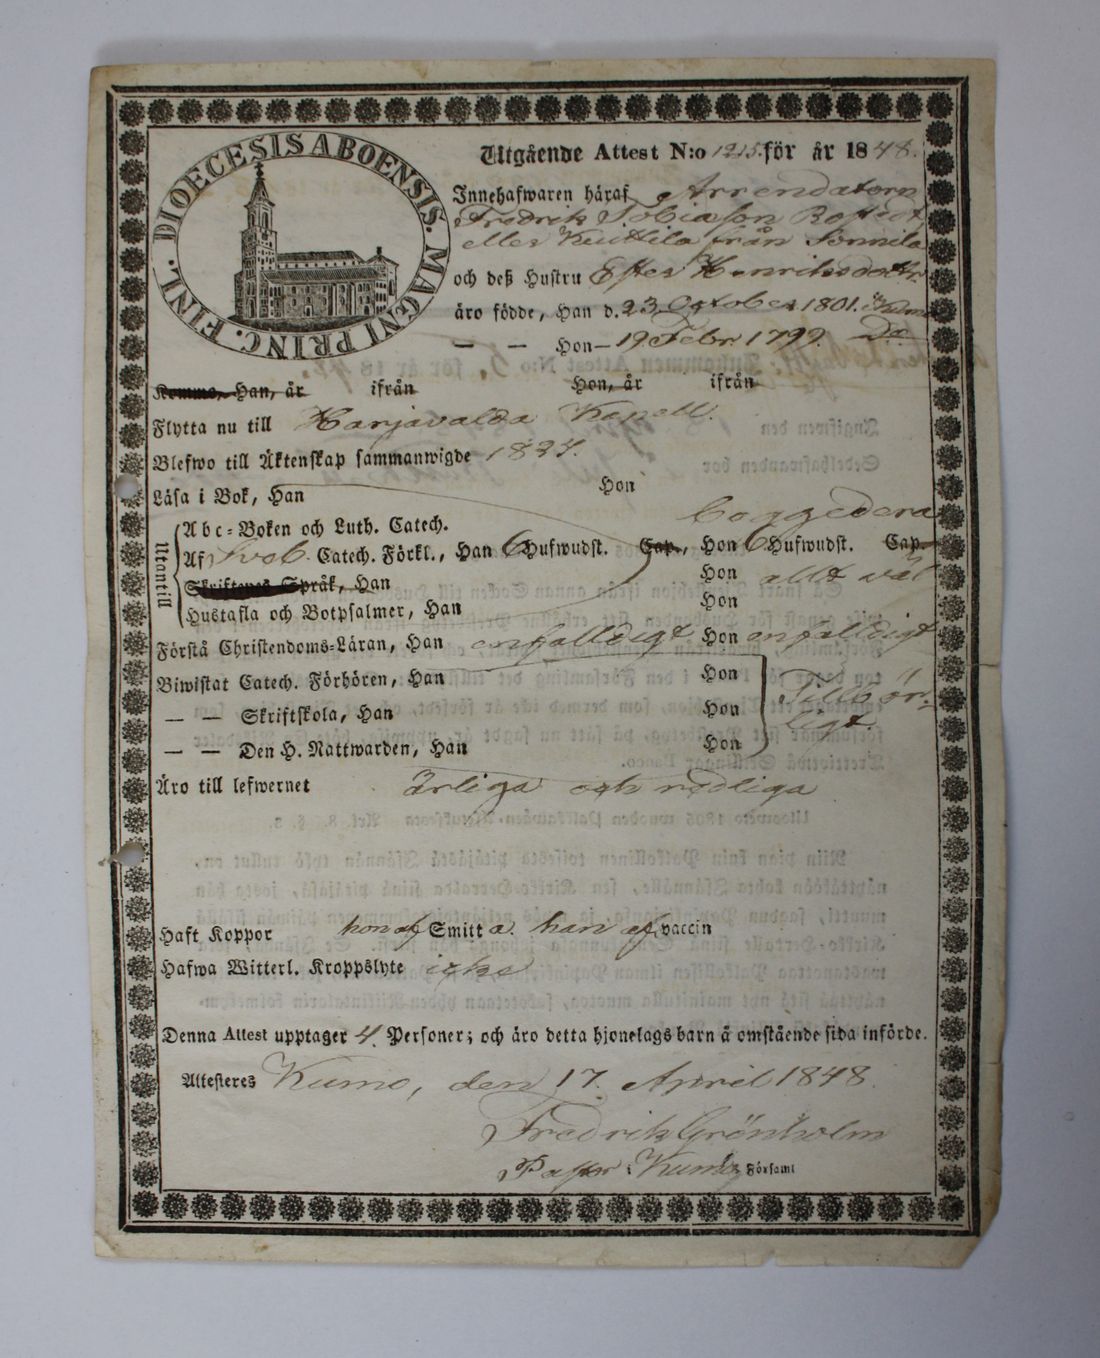 DIOECESIS ABOENSIS. MAGNI PRINC. FINL.
Utgående Attest N:o 1215. för år 1848.
Innehafwaren häraf Arrendatorn
Fredrik Tobiasson Rostedt
eller Keuttila från Sonnila
och deß Hustru Ester Henriksdotter
äro födde, Han d. 23 October 1801. i Kumo
— — Hon — 19 Febr 1799. Do
Komma, Han, år ifrån Hon, år ifrån
Flytta nu till Harjavalda Kapell.
Blefwo till Äktenskap sammanwigde 1824.
Läsa i Bok, Han Hon
Utantill
Abc-Boken och Luth. Catech. beggedera
Af Sveb. Catech. Förkl., Han 6 Hufwudst. Cap., Hon 6 Hufwudst. Cap.
Skriftenes Språk, Han Hon allt väl
Hustafla och Botpsalmer, Han Hon
Förstå Christendoms-Läran, Han enfalldigt Hon enfalldigt
Biwistat Catech. Förhören, Han Hon
— — Skriftskola, Han Hon Tillbör-
ligt.
— — Den H. Nattwarden, Han Hon
Äro till lefwernet ärliga och redliga
Haft Koppor hon af Smitta han af vaccin
Hafwa Witterl. Kroppslyte icke
Denna Attest upptager 4. Personer; och äro detta hjonelags barn å omstående sida införde.
Attesteres Kumo, den 17. April 1848.
Fredrik Grönholm
Pastor i Kumo Församl